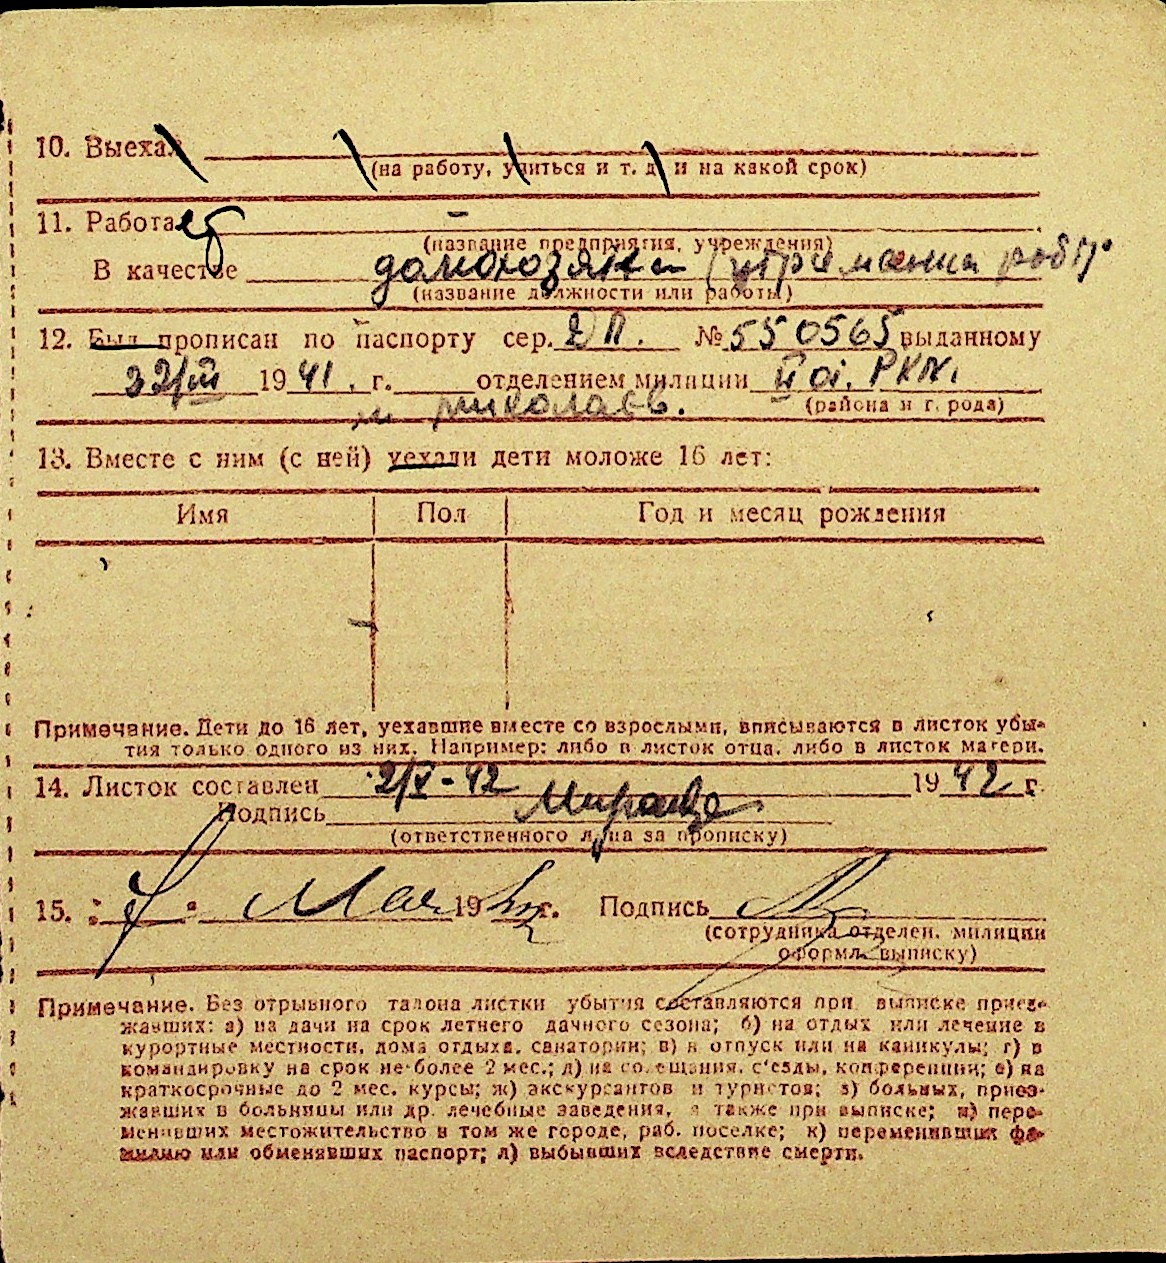 10. Выехал
(на работу, учиться и т. д. и на какой срок)
11. Работает —
(название предприятия, учреждения)
В качестве домохозяйки (утриманка робіт.
(название должности или работы)
12. Был прописан по паспорту сер. ДП. № 550565 выданному
22/III 1941. г. отделением милиции II от. РКМ.
м Миколаєв. (района и г. рода)
13. Вместе с ним (с ней) уехали дети моложе 16 лет:
Имя Пол Год и месяц рождения
Примечание. Дети до 16 лет, уехавшие вместе со взрослыми, вписываются в листок убы-
тия только одного из них. Например: либо в листок отца, либо в листок матери.
14. Листок составлен 2/V-42 1942 г.
Подпись
(ответственного лица за прописку)
15. 7 Мая 1942 г. Подпись
(сотрудника отделен. милиции
оформл. выписку)
Примечание. Без отрывного талона листки убытия составляются при выписке приез-
жавших: а) на дачи на срок летнего дачного сезона; б) на отдых или лечение в
курортные местности, дома отдыха, санатории; в) в отпуск или на каникулы; г) в
командировку на срок не более 2 мес.; д) на совещания, с'езды, конференции; е) на
краткосрочные до 2 мес. курсы; ж) экскурсантов и туристов; з) больных, приез-
жавших в больницы или др. лечебные заведения, а также при выписке; и) пере-
менивших местожительство в том же городе, раб. поселке; к) переменивших фа-
милию или обменявших паспорт; л) выбывших вследствие смерти.